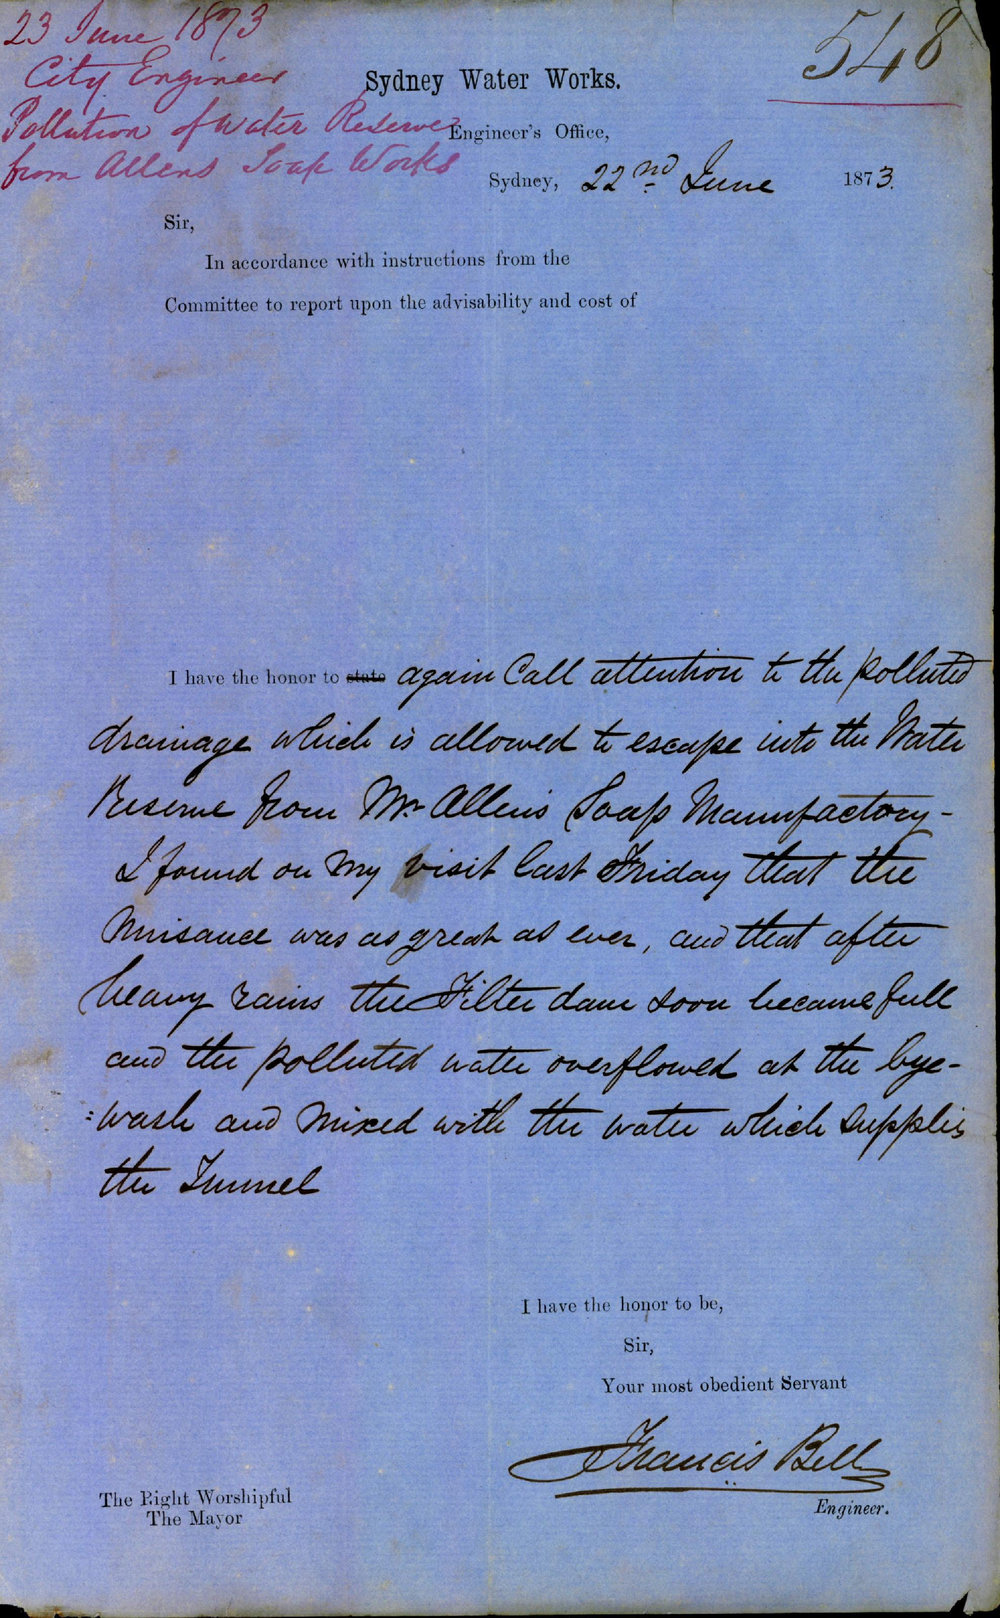 23 June 1873
City Engineer
Pollution of Water Reserve
from Allens Soap Works
548
Sydney Water Works.
Engineer's Office,
Sydney, 22nd June 1873.
Sir,
In accordance with instructions from the
Committee to report upon the advisability and cost of
I have the honor to state again Call attention to the polluted
drainage which is allowed to escape into the Water
Reserve from Mr Allen's Soap Manufactory -
I found on my visit last Friday that the
nuisance was as great as ever, and that after
heavy rains the Filter dam soon became full
and the polluted water overflowed at the bye-
:wash and mixed with the water which supplies
the Tunnel
I have the honor to be,
Sir,
Your most obedient Servant
Francis Bell
Engineer.
The Right Worshipful
The Mayor